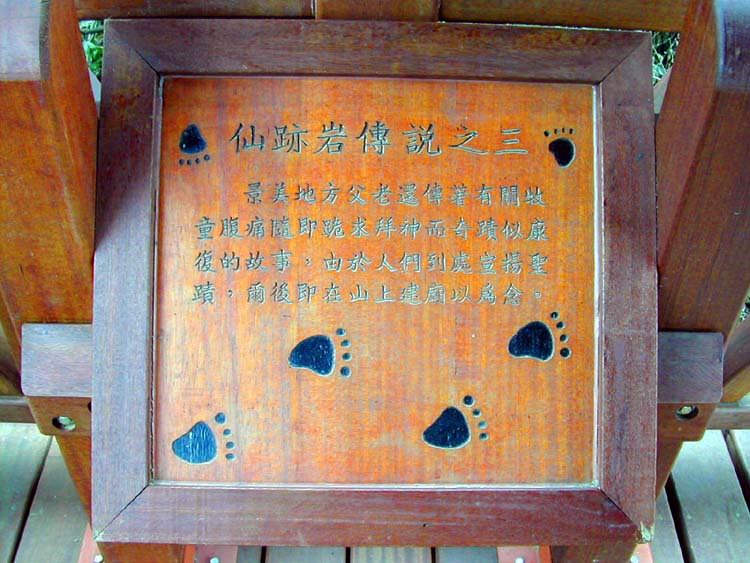 仙跡岩傳説之三
景美地方父老還傳著有關牧
童腹痛隨即跪求拜神而奇蹟似康
復的故事，由於人們到處宣揚聖
蹟，爾後即在山上建廟以為念。